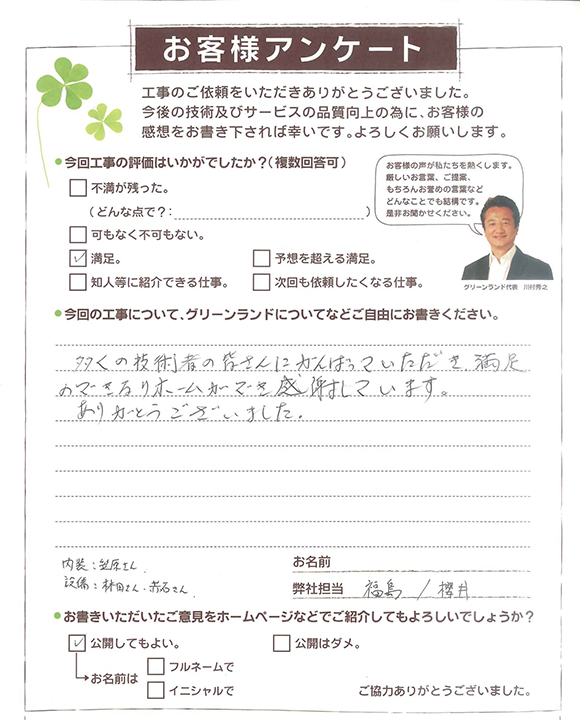 お客様アンケート
工事のご依頼をいただきありがとうございました。
今後の技術及びサービスの品質向上の為に、お客様の
感想をお書き下されば幸いです。よろしくお願いします。
●今回工事の評価はいかがでしたか?(複数回答可)
不満が残った。
(どんな点で?: )
可もなく不可もない。
✓満足。 予想を超える満足。
知人等に紹介できる仕事。 次回も依頼したくなる仕事。
お客様の声が私たちを熱くします。
厳しいお言葉、ご提案、
もちろんお誉めの言葉など
どんなことでも結構です。
是非お聞かせください。
グリーンランド代表 川村秀之
●今回の工事について、グリーンランドについてなどご自由にお書きください。
多くの技術者の皆さんにがんばっていただき、満足
のできるリホームができ感謝しています。
ありがとうございました。
内装:笠原さん
設備:林田さん・赤石さん
お名前
弊社担当 福島 / 櫻井
●お書きいただいたご意見をホームページなどでご紹介してもよろしいでしょうか?
✓公開してもよい。 公開はダメ。
お名前は フルネームで
イニシャルで
ご協力ありがとうございました。